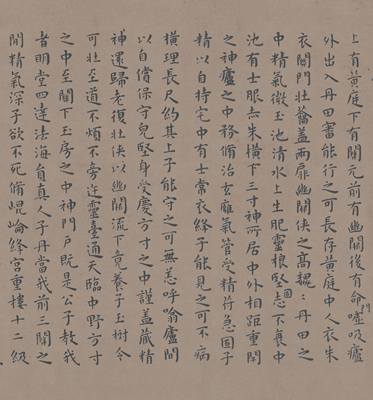 上有黃庭下有關元前有幽關後有命門噓吸廬
外出入丹田審能行之可長存黃庭中人衣朱
衣關門壯蘥蓋兩扉幽關俠之高巍〻丹田之
中精氣微玉池清水上生肥靈根堅固志不衰中
池有士服赤朱橫下三寸神所居中外相距重閇
之神廬之中務脩治玄癕氣管受精符急固子
精以自持宅中有士常衣絳子能見之可不病
橫理長尺約其上子能守之可無恙呼噏廬間
以自償保守皃堅身受慶方寸之中謹蓋藏精
神還歸老復壯俠以幽關流下竟養子玉樹令
可壯至道不煩不旁迕靈臺通天臨中野方寸
之中至關下玉房之中神門戶既是公子教我
者明堂四達法海員真人子丹當我前三關之
間精氣深子欲不死脩崐崘絳宮重樓十二級